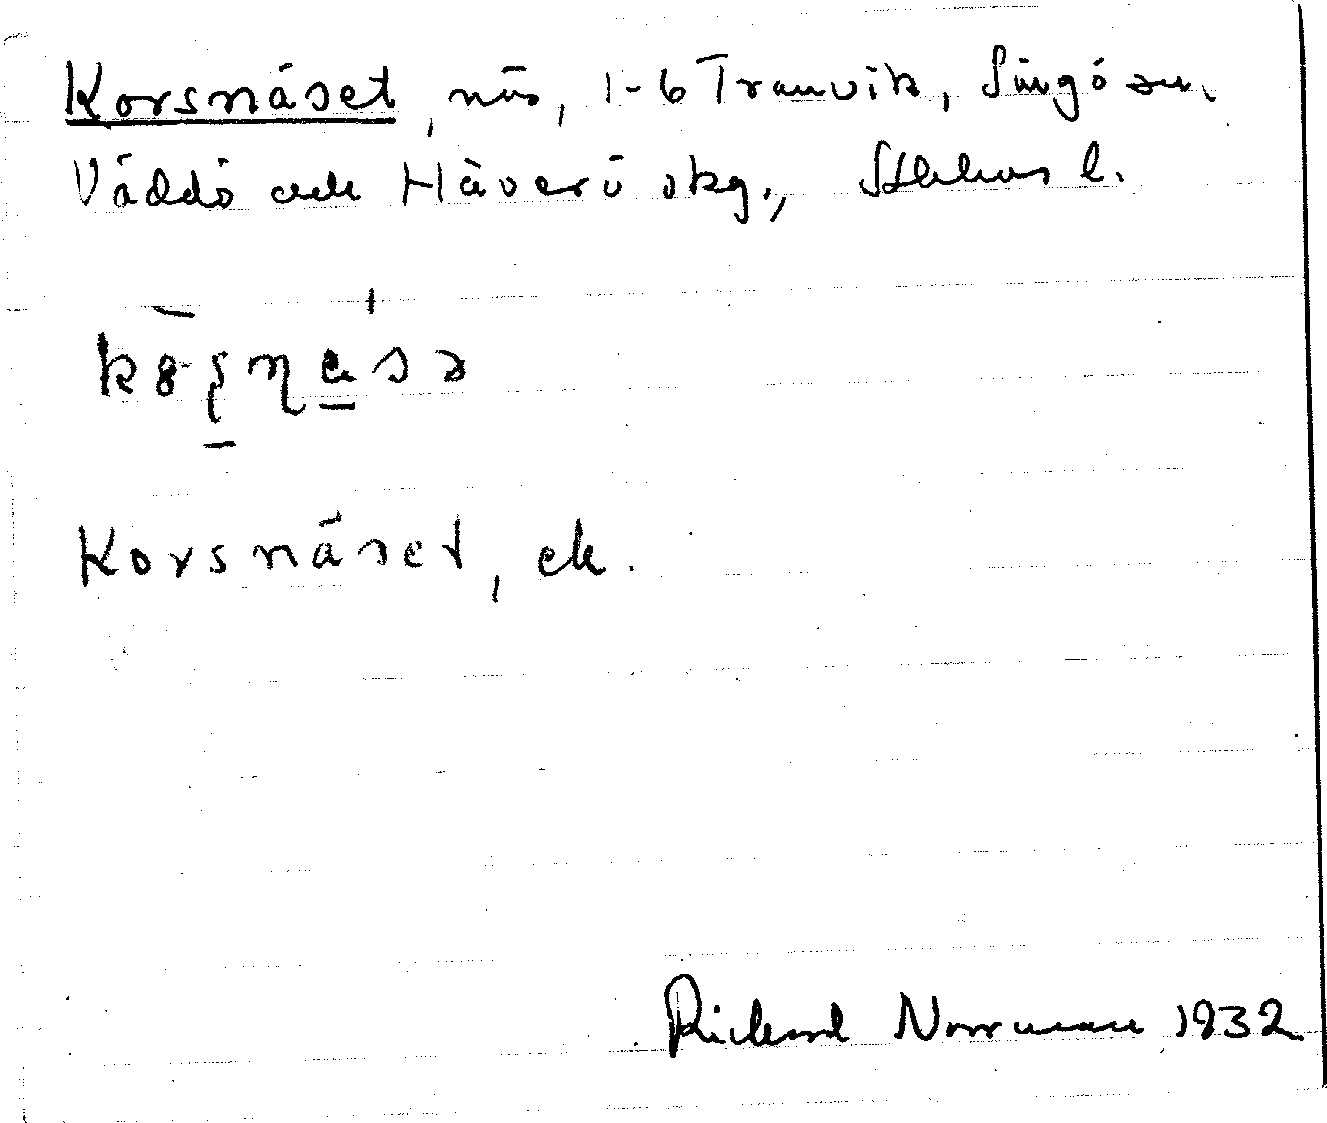 Korsnäset, näs, 1-6 Tranvik, Singö sn,
Väddö och Häverö skg., Sthlms l.
Korsnäset, ek.
Rickard Norrman 1932